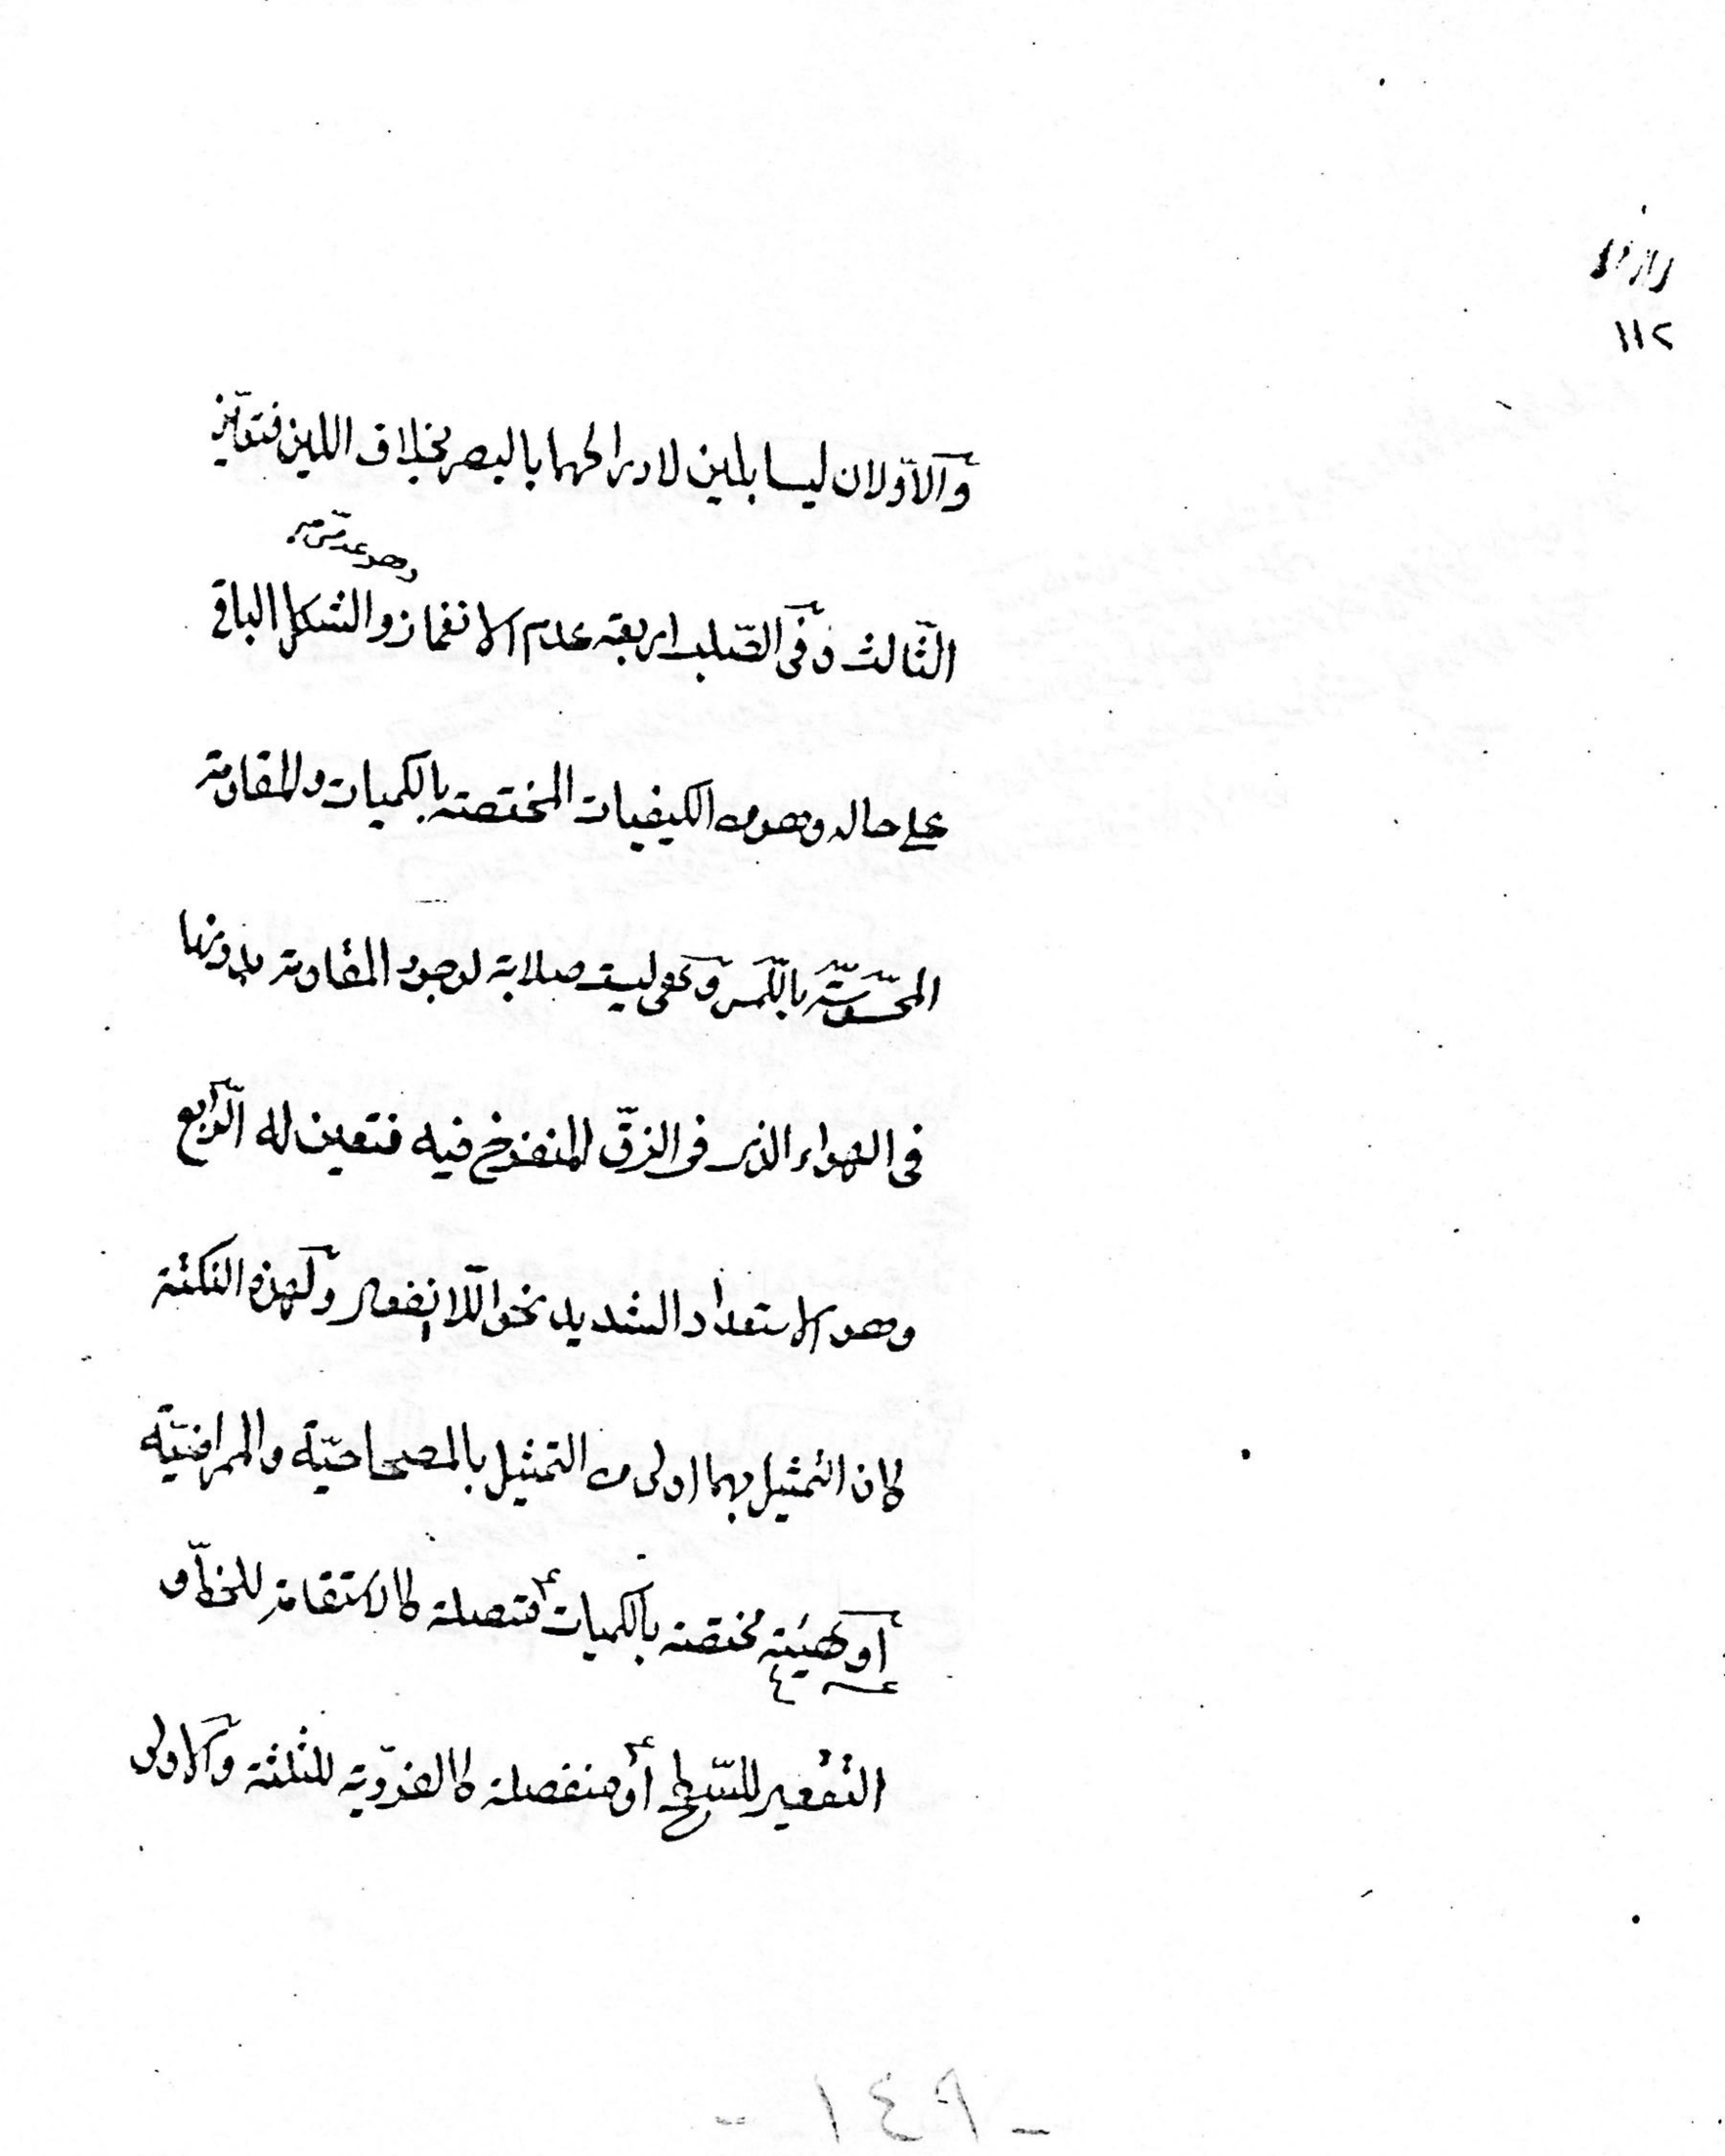 ١١٢
والاولان ليسا بلين لادراكهما بالبصر بخلاف اللين فتعين
وهو عدمي
الثالث وفى الصلب اربعة عدم الانغماز والشكل الباقى
على حاله وهو من الكيفيات المختصة بالكميات والمقاومة
المحسوسة باللمس وهى ليست صلابة لوجود المقاومة بدونها
فى الهواء الذى فى الزقّ المنفوخ فيه فتعين له الرابع
وهو الاستعداد الشديد نحو اللاانفعال ولهذه النكتة
كان التمثيل بهما اولى من التمثيل بالمصحاحيّة والممراضيّة
او هيئة مختصة بالكميات متصلة كالاستقامة للخط و
التقعير للسطح او منفصلة كالفرديّة للثلثة والاولى
- ١٤٩ -